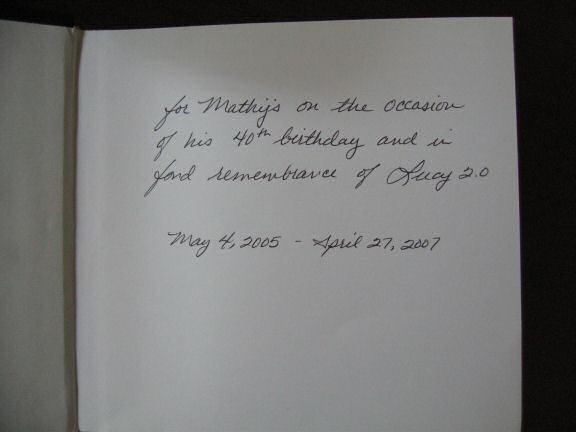 for Mathijs on the occasion
of his 40th birthday and in
fond remembrance of Lucy 2.0
May 4, 2005 - April 27, 2007